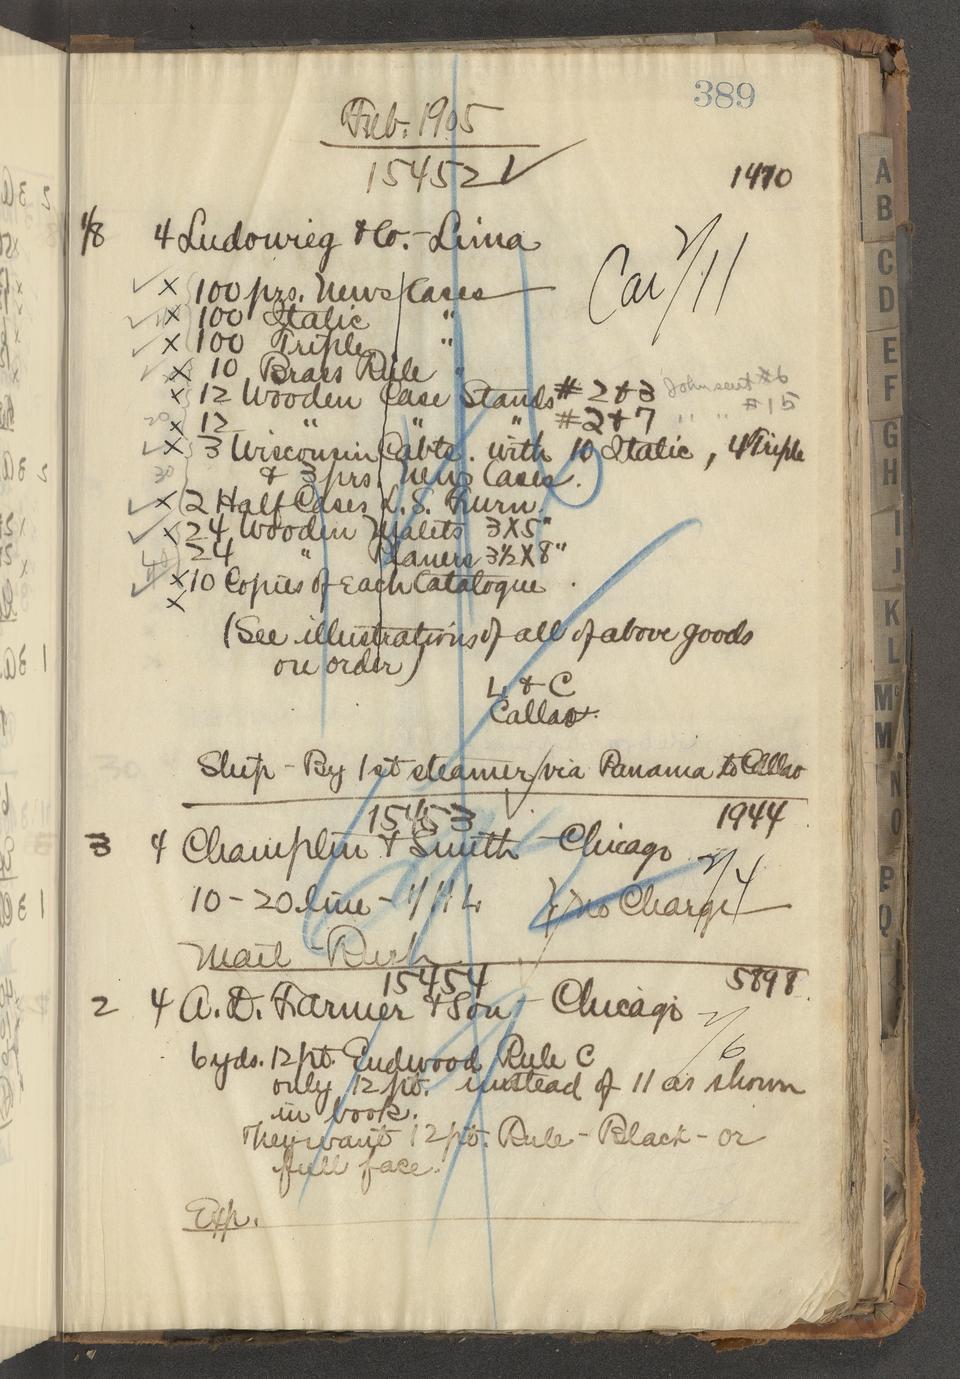 389
Feb. 1905
15452 ✓
1470
1/8 4 Ludowieg & Co. - Lima
Car 2/11
✓ x 100 prs. News Cases
✓ x 100 Italic "
✓ x 100 Triple "
x 10 Brass Rule "
x 12 Wooden Case Stands #2&3 John sent #6
x 12 " " " #2&7 " " #15
✓ x 3 Wisconsin Cabts. with 10 Italic, 4 Triple
& 3 prs. News Cases.
✓ x 2 Half Cases L.S. Furn.
✓ x 24 Wooden Malets 3X5"
24 " Planers 3½X8"
✓ x 10 Copies of Each Catalogue.
x
(See illustrations of all of above goods
on order)
L & C
Callao.
Ship - By 1st steamer via Panama to Callao
15453 ✓
1944
3 4 Champlin & Smith - Chicago
2/4
10 - 20 line -
No Charge
Mail - Rush
15454
5898
2 4 A. D. Farmer & Son - Chicago
2/6
6 yds. 12 pt. Endwood Rule C
only 12 pt. instead of 11 as shown
in book.
They want 12 pt. Rule - Black - or
full face.
Exp.
A
B
C
D
E
F
G
H
I
J
K
L
Mc
M
N
O
P
Q